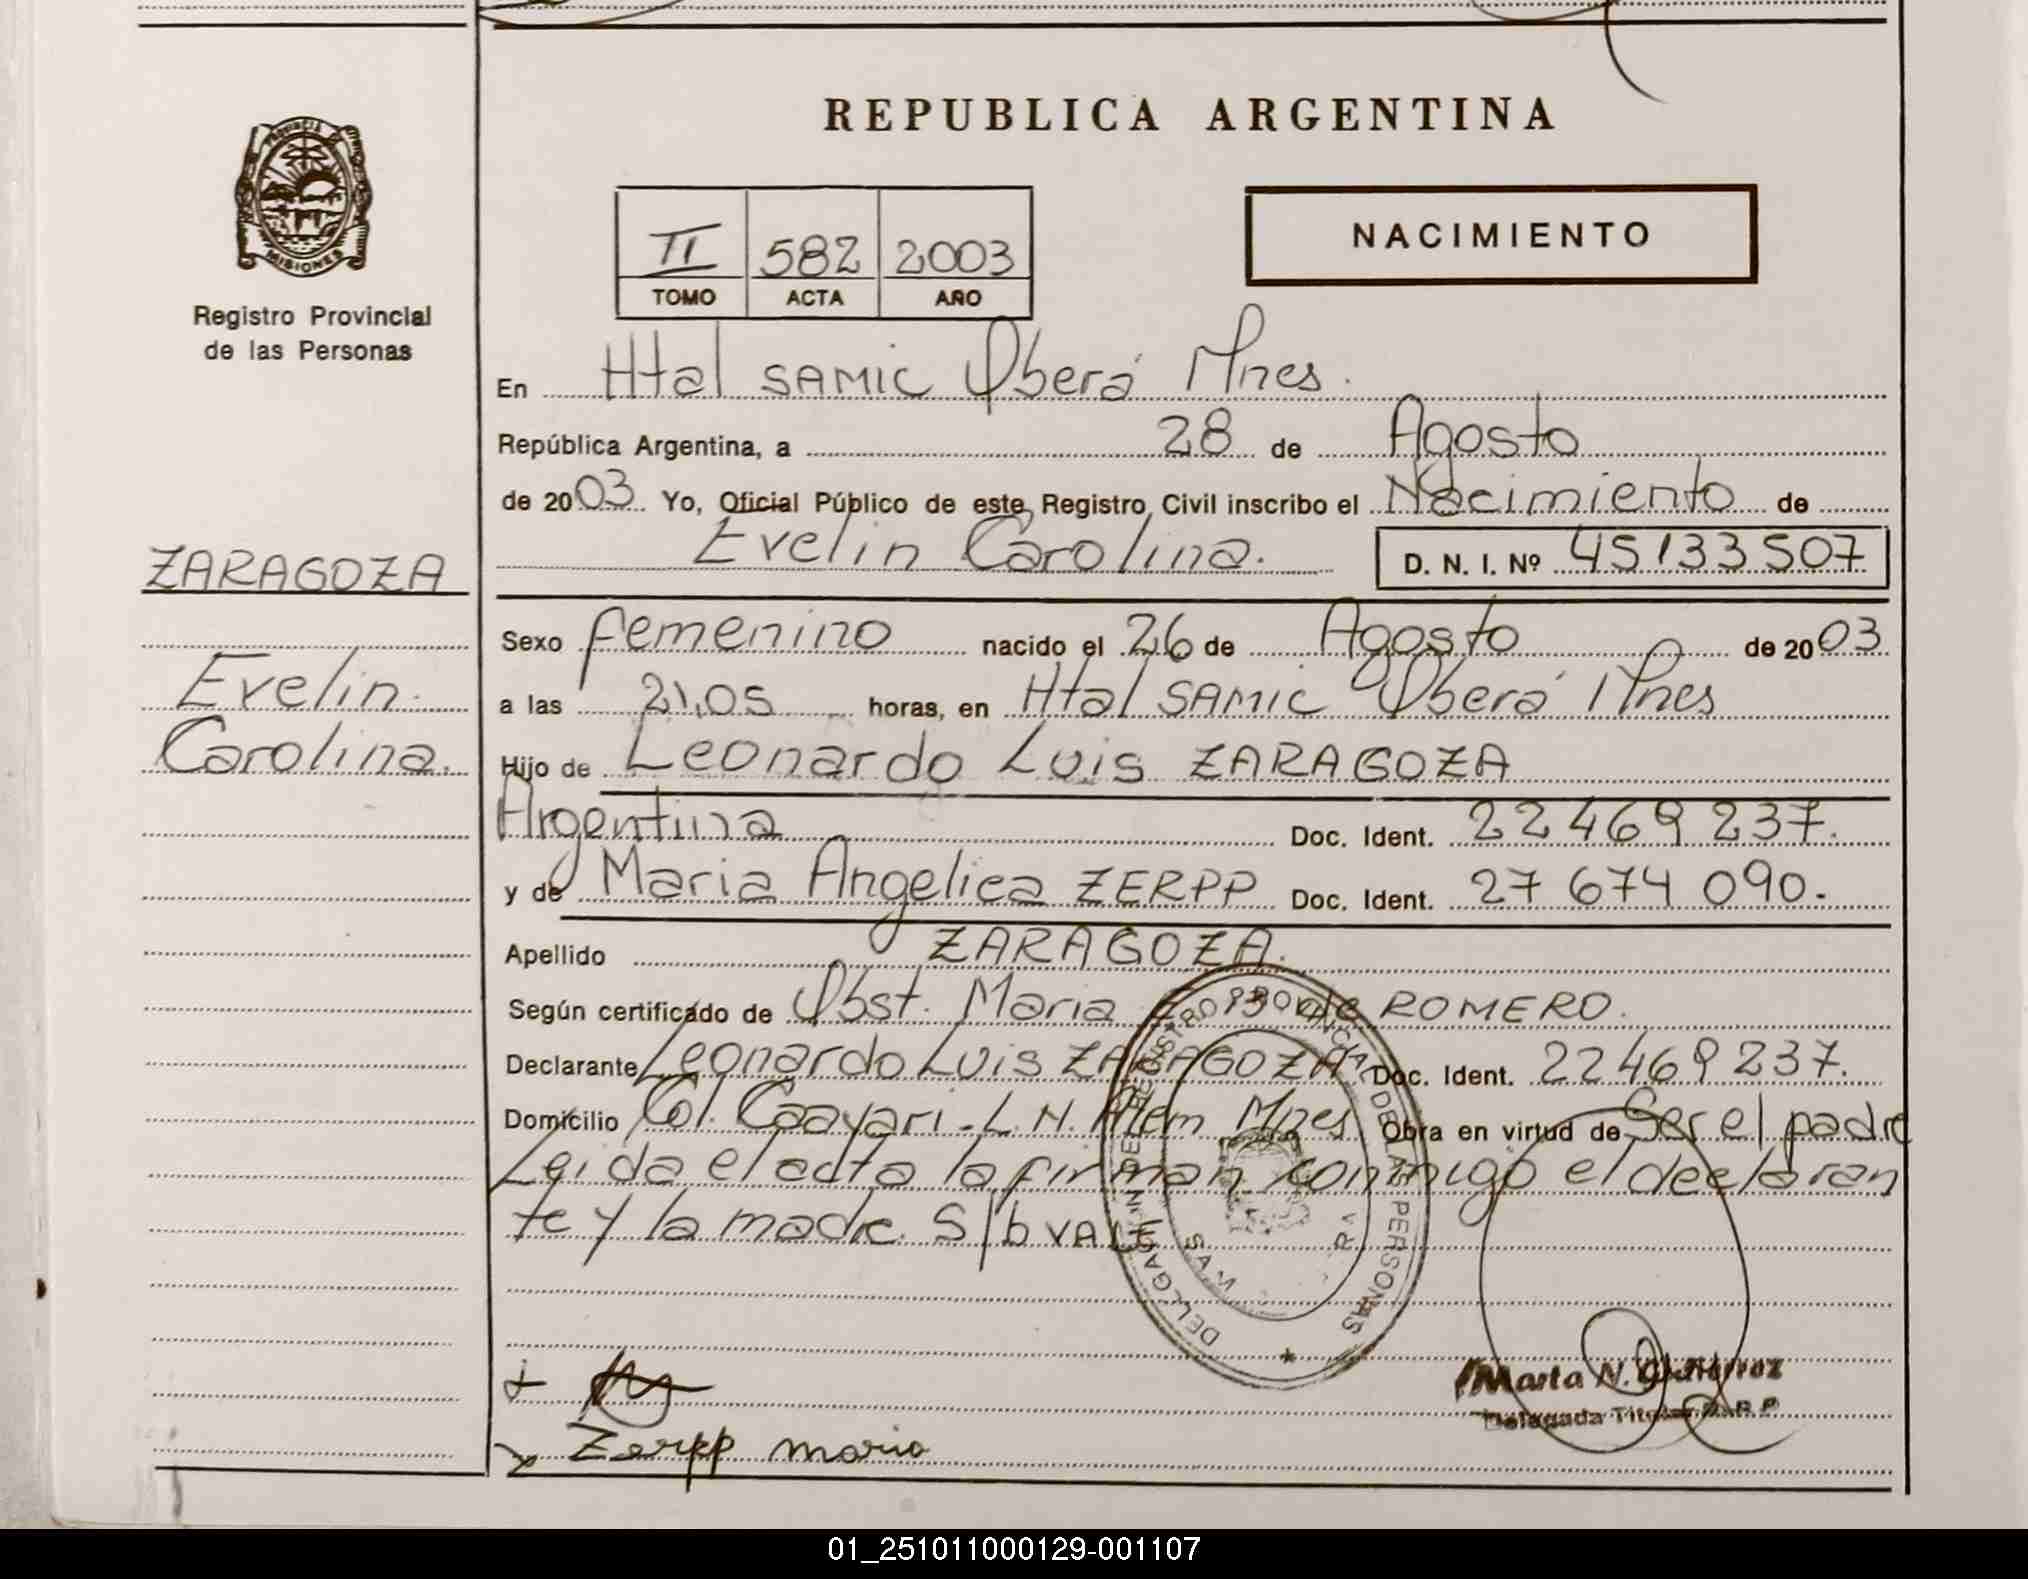 REPUBLICA ARGENTINA
PROVINCIA DE
MISIONES
Registro Provincial
de las Personas
II 582 2003
TOMO ACTA AÑO
NACIMIENTO
En Htal SAMIC Oberá Mnes.
República Argentina, a 28 de Agosto
de 2003. Yo, Oficial Público de este Registro Civil inscribo el Nacimiento de
Evelin Carolina. D. N. I. Nº 45133507
ZARAGOZA
Evelin
Carolina.
Sexo femenino nacido el 26 de Agosto de 2003
a las 21,05 horas, en Htal SAMIC Oberá Mnes
Hijo de Leonardo Luis ZARAGOZA
Argentina Doc. Ident. 22469237.
y de Maria Angelica ZERPP Doc. Ident. 27 674 090.
Apellido ZARAGOZA.
Según certificado de Obst. Maria de ROMERO.
Declarante Leonardo Luis ZARAGOZA Doc. Ident. 22469237.
Domicilio Col. Caayari - L. N. Alem Mnes Obra en virtud de Ser el padre
Leida el acta la firman conmigo el declaran
te y la madre. S/b
DEL REGISTRO PROVINCIAL DE LAS PERSONAS
Zerpp maria
Marta N. Gutierrez
Delegada Titular R. P. P
01_251011000129-001107